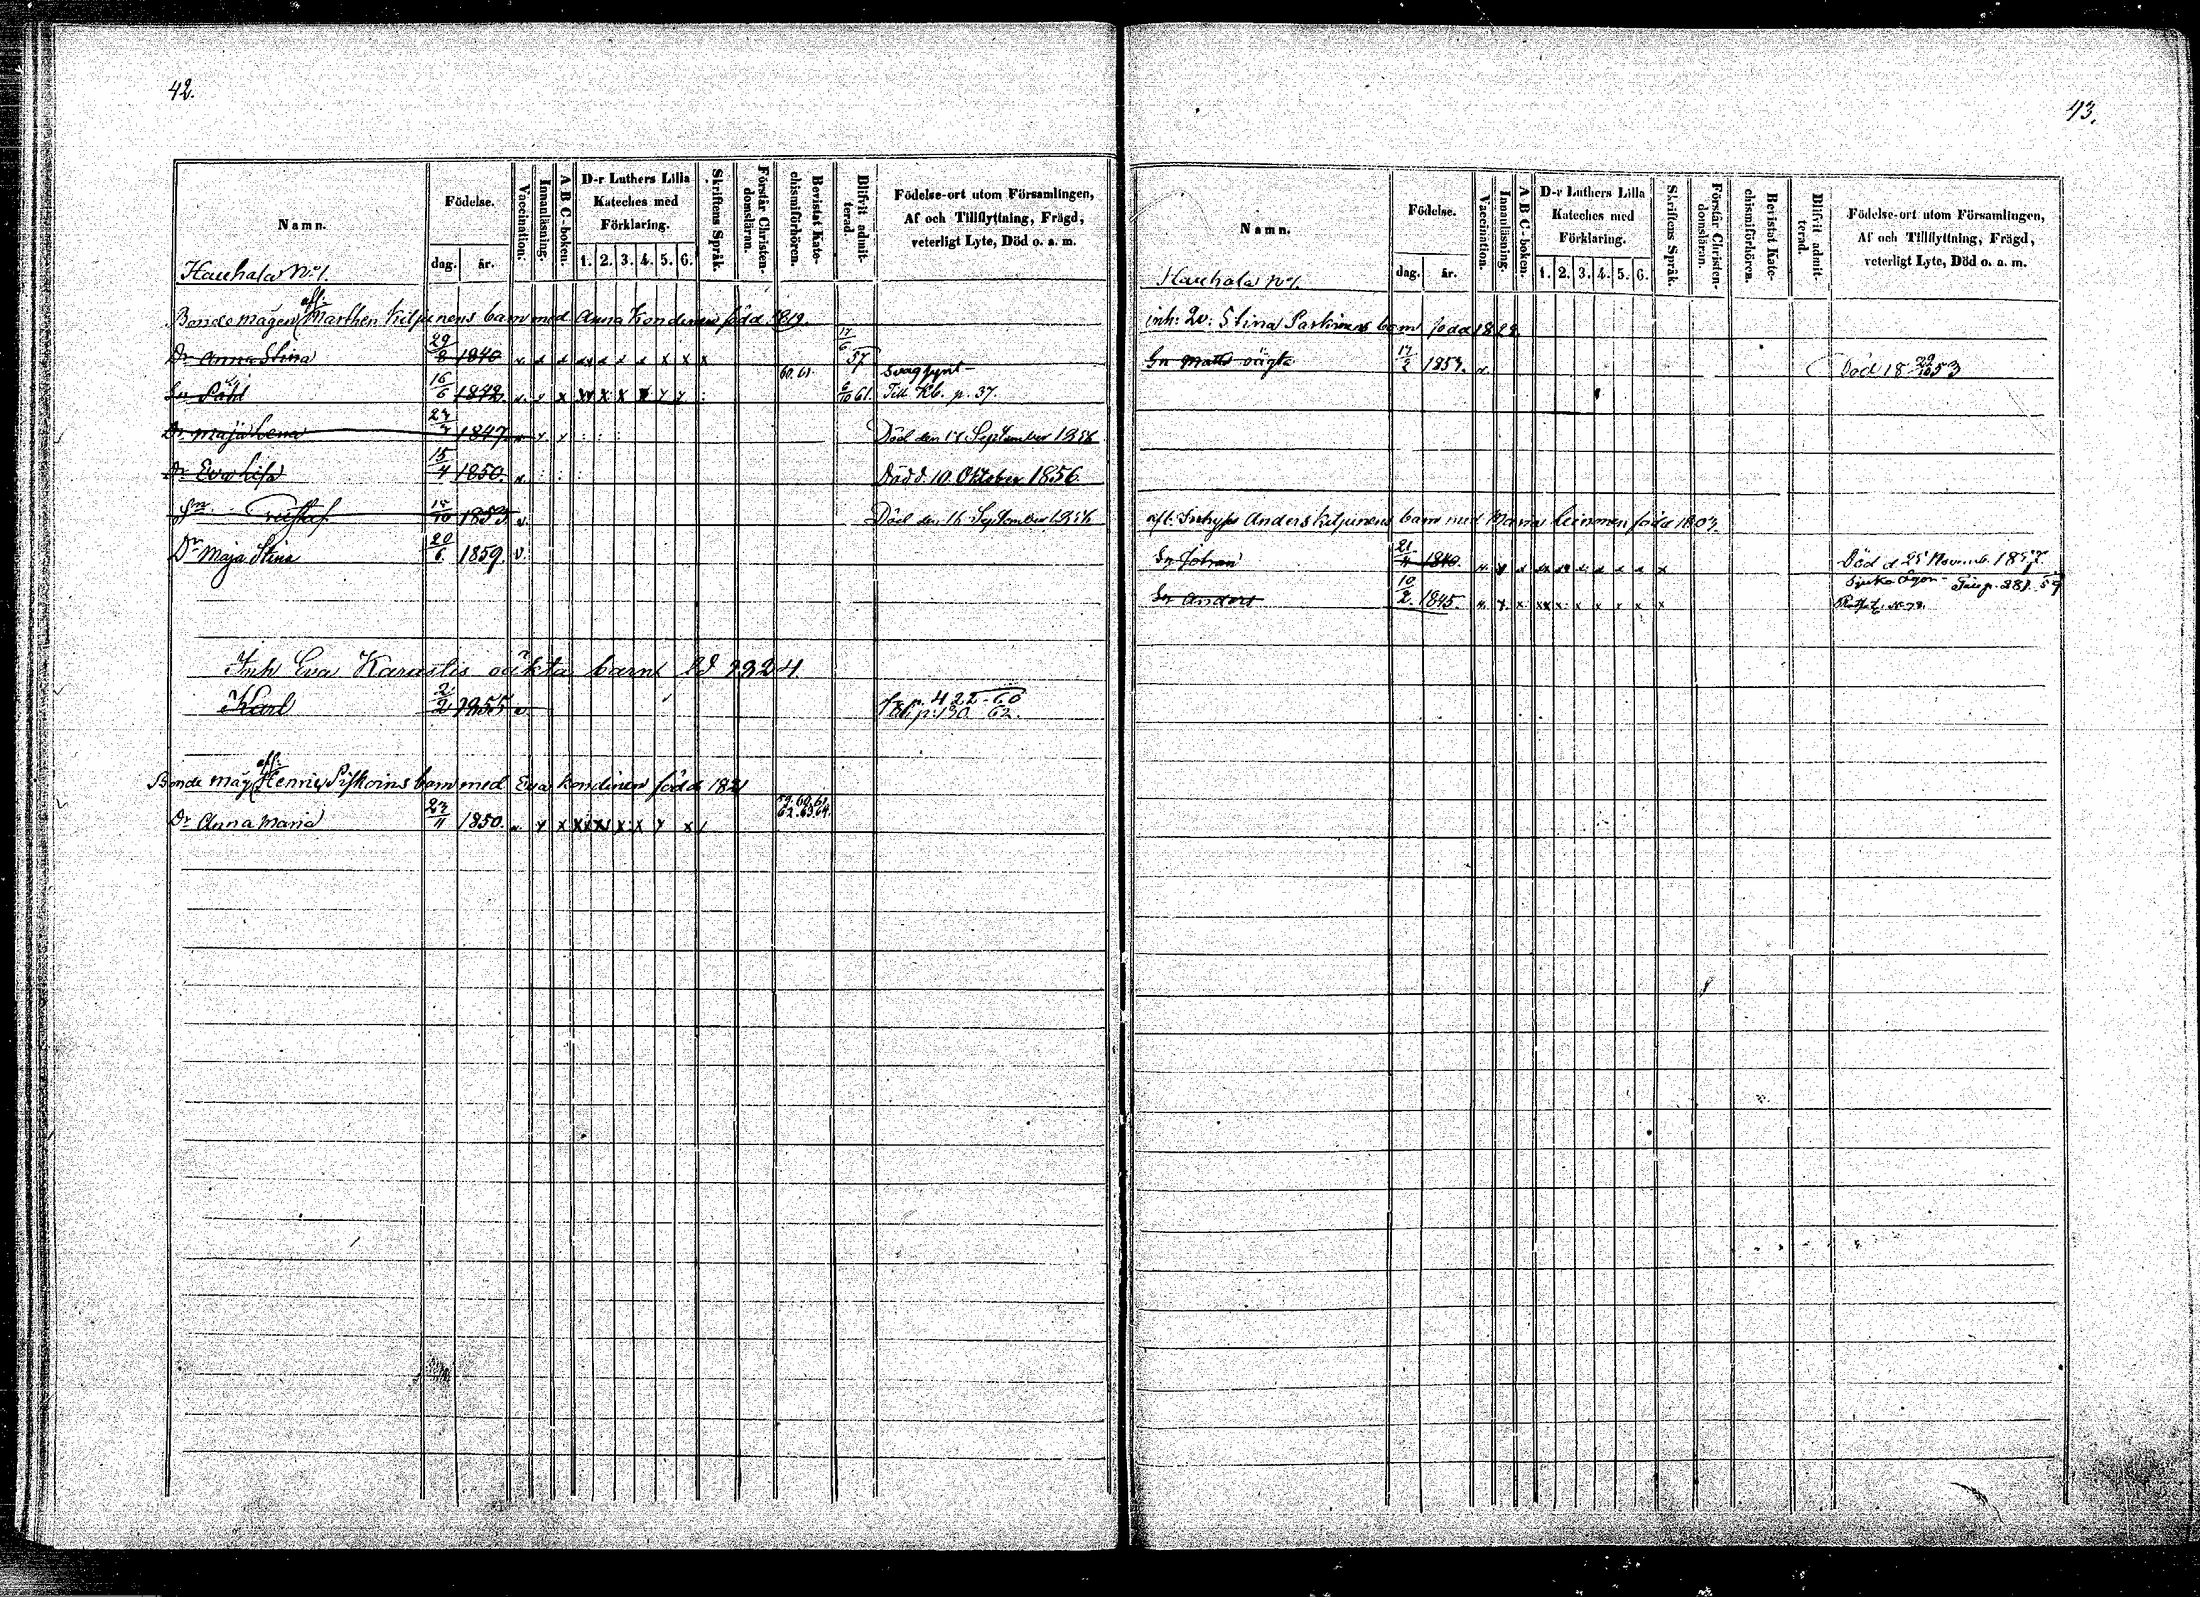 42.
Namn.
Födelse.
dag. år.
Vaccination.
Innanläsning.
A B C-boken.
D-r Luthers Lilla Kateches med Förklaring.
1. 2. 3. 4. 5. 6.
Skriftens Språk.
Förstår Christendomsläran.
Bevistat Katechismiförhören.
Blifvit admitterad.
Födelse-ort utom Församlingen,
Af och Tillflyttning, Frägd,
veterligt Lyte, Död o. a. m.
Hauhala No 1.
afl:
Bonde mågen Marthen Kilpinens barn med Anna Kondinen född 1819.
Dr Anna Stina 29/8 1840 17/6 57
Sn Påhl 16/6 1842. 60. 61. 6/10 61. Svagsynt – Till Kb. p. 37.
Dr Maja Lena 23/7 1847 Död den 17 September 1856
Dr Eva Lisa 15/4 1850. Död d. 10. Oktober 1856.
Sn Gustaf 15/10 1853. Död den 16 September 1856
Dr Maja Stina 20/6 1859. v.
Inh Eva Karastis oäkta barn
Karl 2/2 1855 p. 422–60
Till p: 130 62.
afl:
Bonde måg Henric Pitkoins barn med Eva Kondinen född 1821
Dr Anna Maria 23/11 1850. 59. 60. 61. 62. 63. 64.
43.
Namn.
Födelse.
dag. år.
Vaccination.
Innanläsning.
A B C-boken.
D-r Luthers Lilla Kateches med Förklaring.
1. 2. 3. 4. 5. 6.
Skriftens Språk.
Förstår Christendomsläran.
Bevistat Katechismiförhören.
Blifvit admitterad.
Födelse-ort utom Församlingen,
Af och Tillflyttning, Frägd,
veterligt Lyte, Död o. a. m.
Hauhala No 1.
Inh: Stina Parkinens barn född 1828.
Sn Matts oägta 17/2 1853. Död 18 29/10 53
afl. Inhyses Anders Kilpinens barn med Maria Leinonen född 1803.
Sn Johan 21/4 1840 Död d 25 Novemb. 1857.
Sn Anders 10/2 1845. Sjuka ögon –